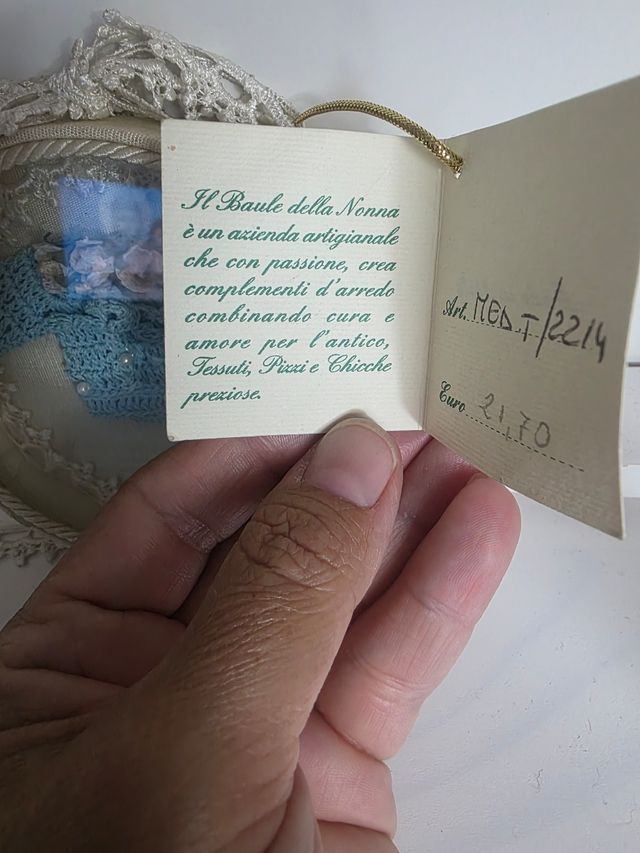 Il Baule della Nonna
è un azienda artigianale
che con passione, crea
complementi d'arredo
combinando cura e
amore per l'antico,
Tessuti, Pizzi e Chicche
preziose.
Art. MED T/2214
Euro 21,70